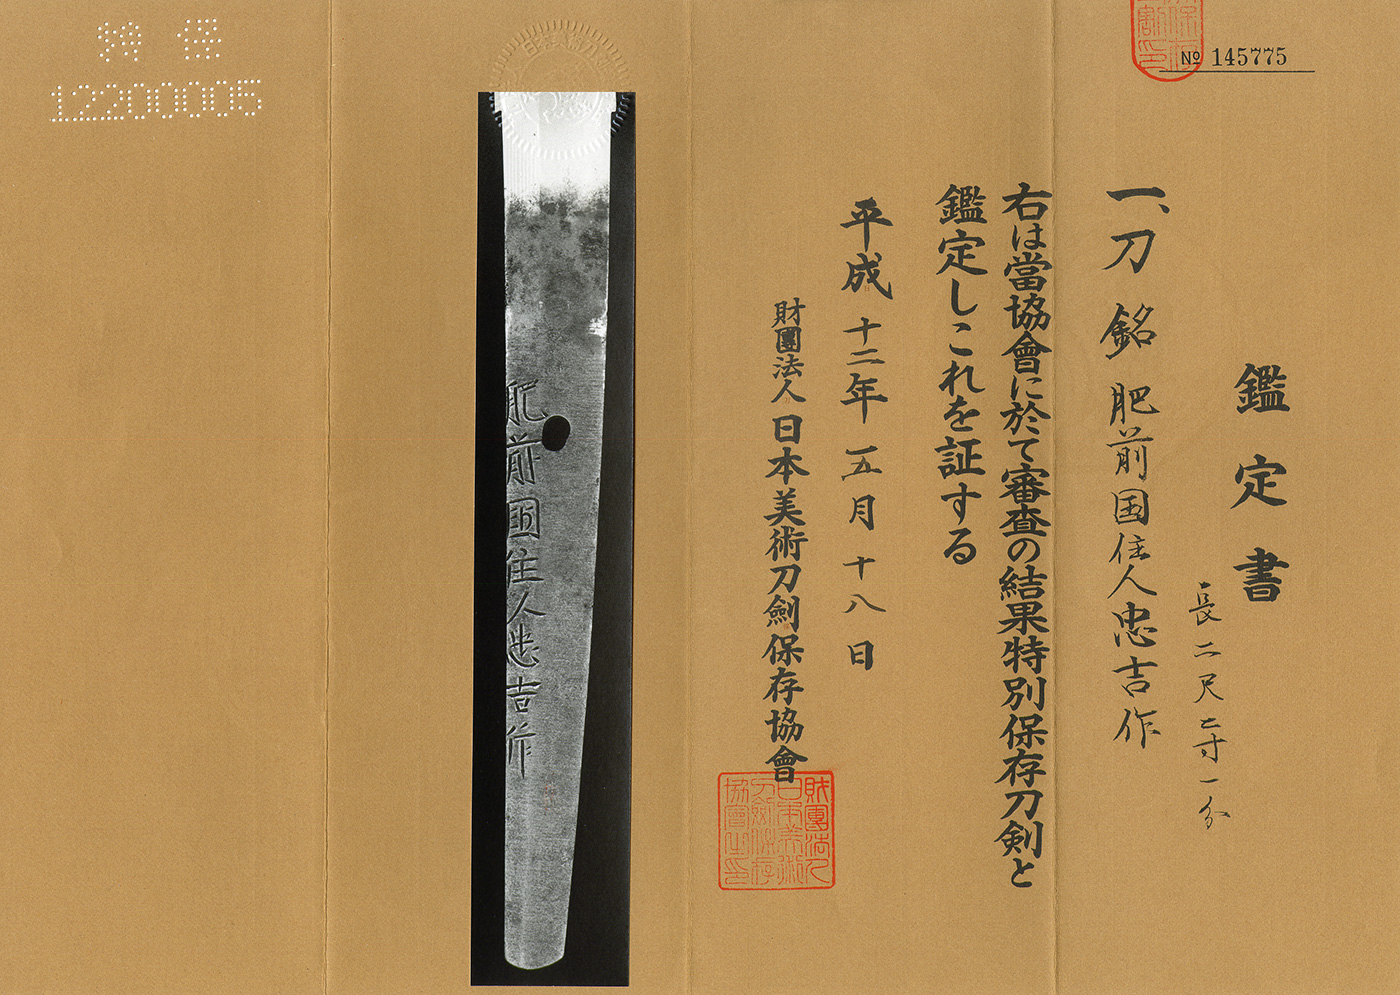 № 145775
鑑定書
長二尺二寸一分
一、刀 銘 肥前国住人忠吉作
右は當協會に於て審査の結果特別保存刀剣と
鑑定しこれを証する
平成十二年五月十八日
財團法人日本美術刀劍保存協會
財團法人
日本美術
刀劍保存
協會之印
肥前國住人忠吉作
特保
12200005